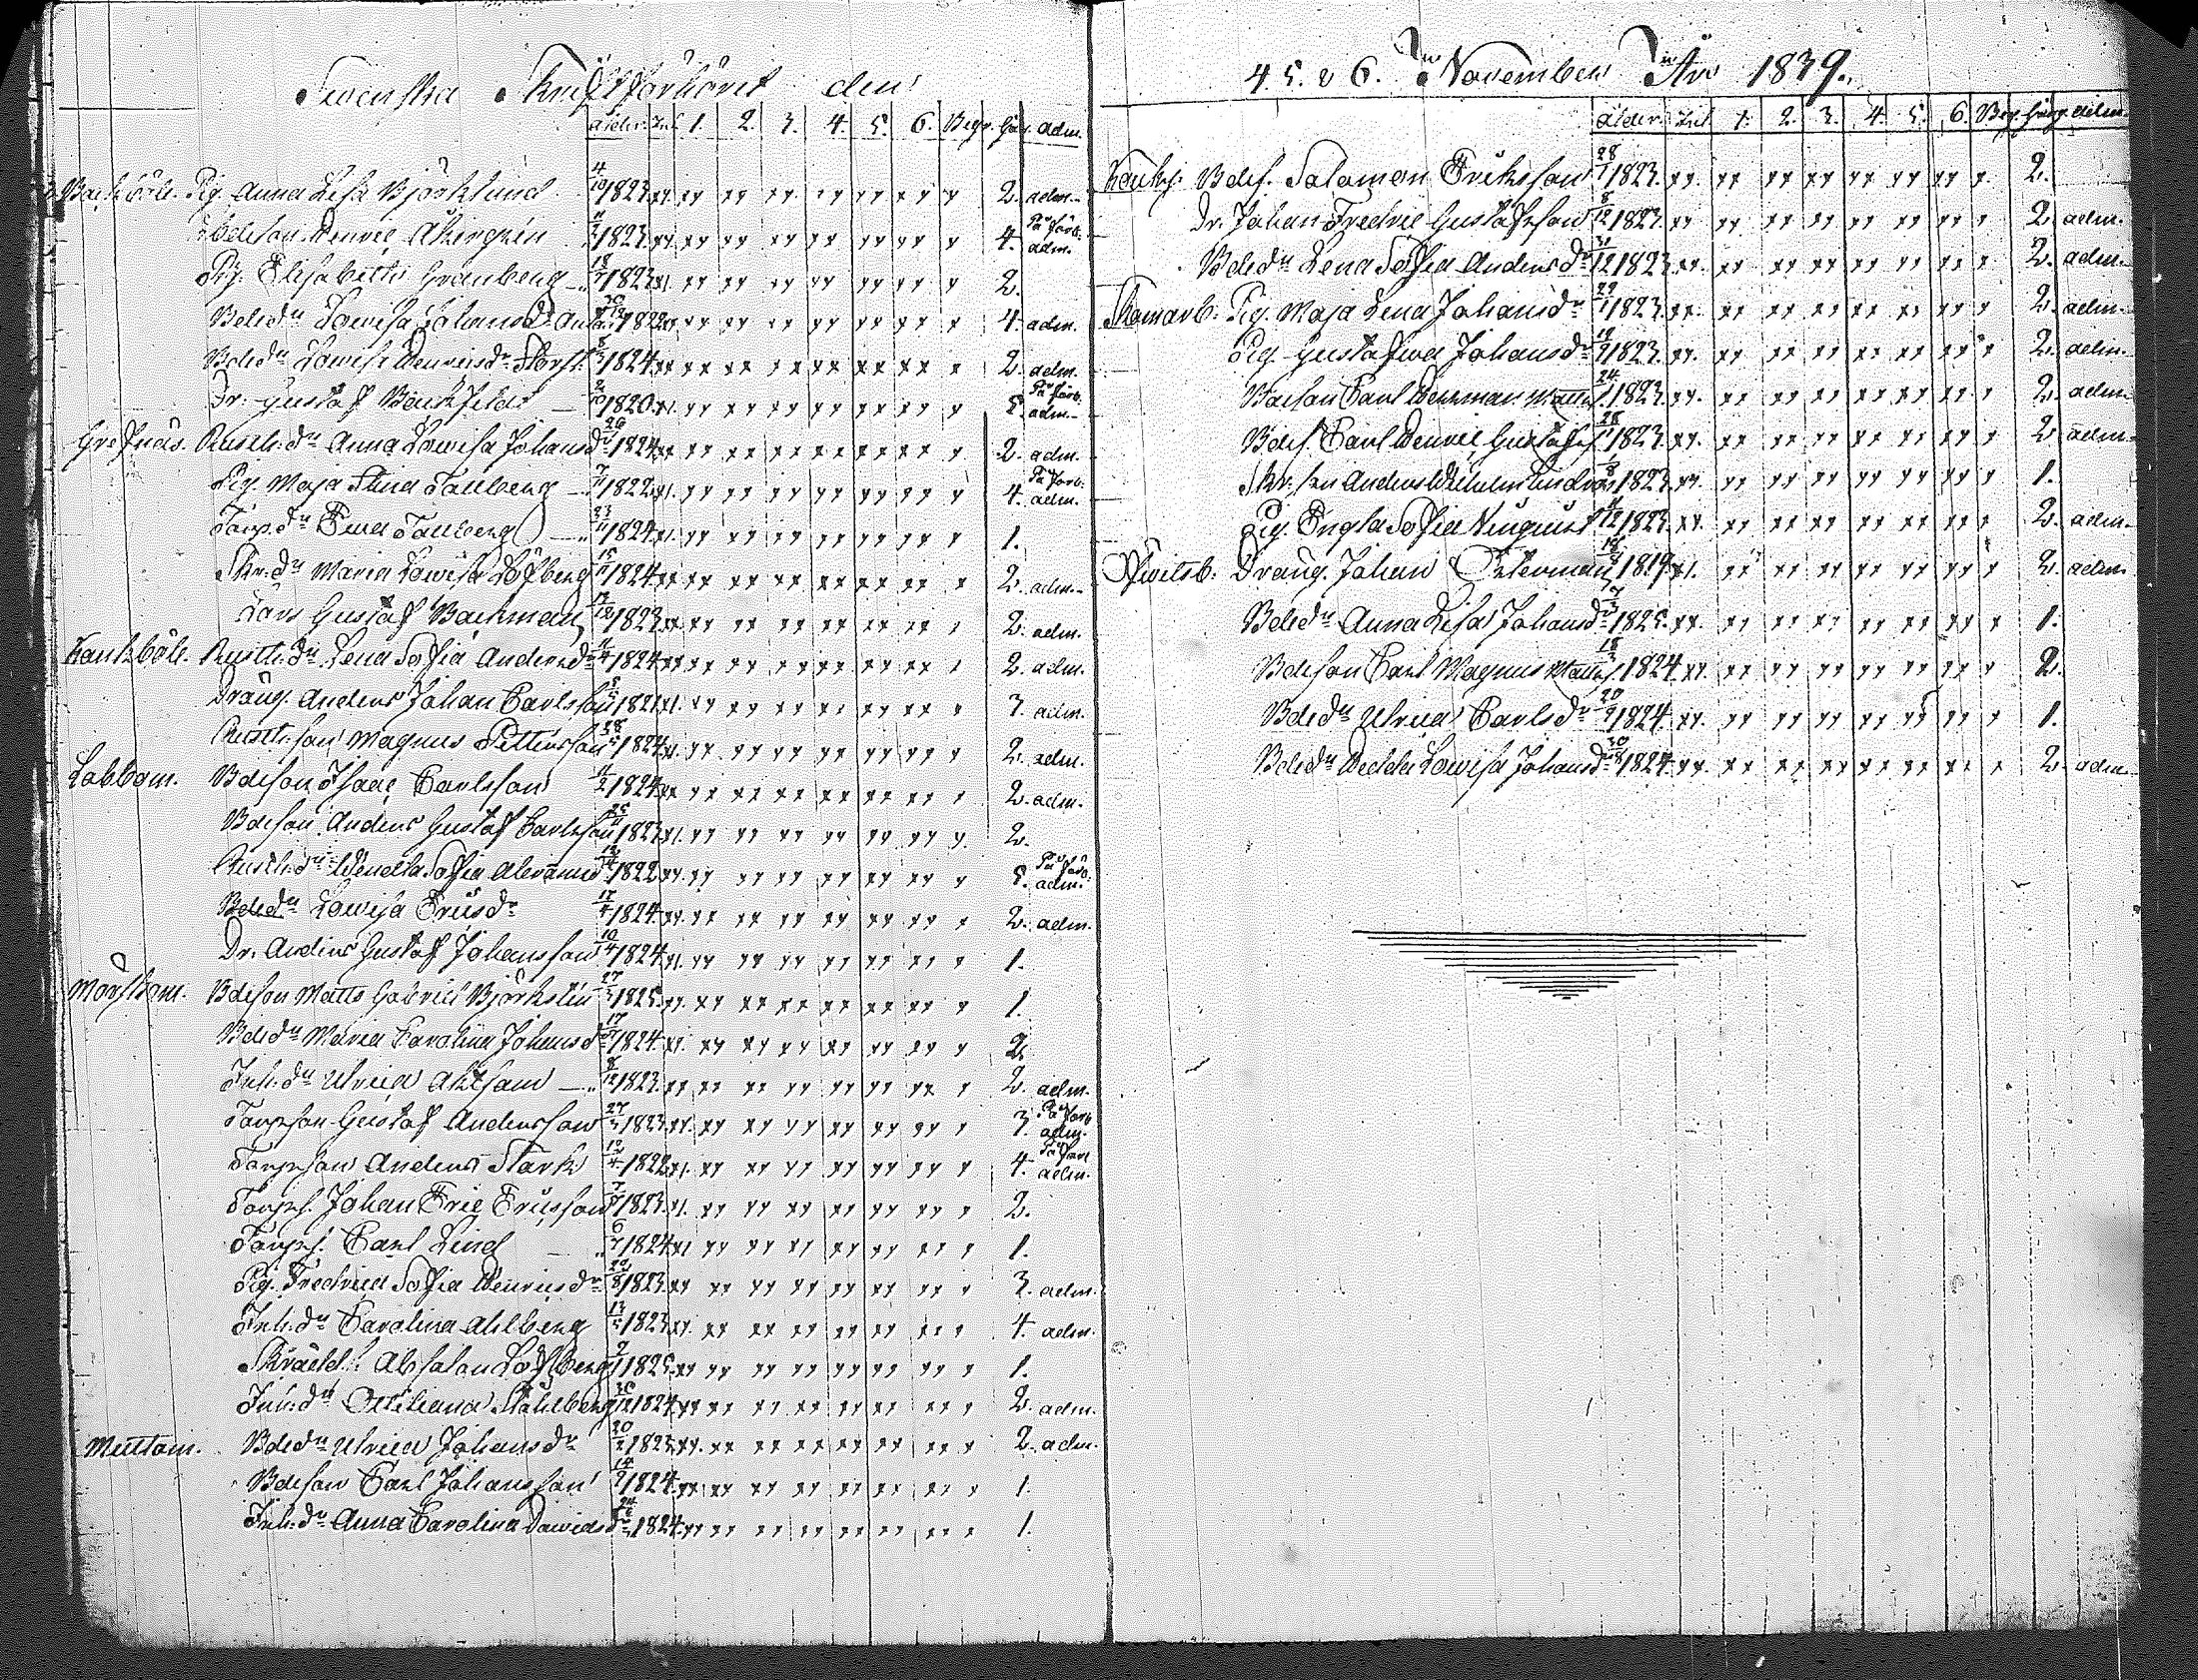 Swenska Skriftförhöret den
ålder. Inl. 1. 2. 3. 4. 5. 6. Begr. Gån. adm.
Backböle. Pig. Anna Lisa Björklund 4/10 1823. xx. xx xx xx xx xx xx x 2. adm.
Bdeson Henric Åkergrén 1823. xx xx xx xx xx xx xx x 4. På förb. adm.
Pig. Elisabeth Granberg 18/7 1823. xx. xx xx xx xx xx xx x 2.
Bdedr Lowisa Johansdr 1822. xx xx xx xx xx xx xx x 4. adm.
Bdedr Lowisa Henricsdr 1824. xx xx xx xx xx xx xx x 2. adm.
Dr. Gustaf 1820. xx. xx xx xx xx xx xx x 5. På förb. adm.
Gresnäs. Rusth.dr Anna Lowisa Johansd 1824. xx xx xx xx xx xx xx x 2. adm.
Pig. Maja Stina Tallberg 7/11 1822. xx. xx xx xx xx xx xx x 4. På förb. adm.
Torp.dr Ewa Tallberg 23/11 1824. xx. xx xx xx xx xx xx x 1.
Skr.dr Maria Lowisa Löfberg 15/11 1824. xx xx xx xx xx xx xx x 2. adm.
Lars Gustaf Backman 17/12 1823. xx xx xx xx xx xx xx x 2. adm.
Kankböle. Rusth.dr Lena Sofia Andersdr 1824. xx xx xx xx xx xx xx x 2. adm.
Dräng. Anders Johan Carlsson 1821. xx. xx xx xx xx xx xx x 3. adm.
Rusth.son Magnus Pettersson 1824. xx. xx xx xx xx xx xx x 2. adm.
Labbom. Bdeson Isaac Carlsson 11/2 1824. xx xx xx xx xx xx xx x 2. adm.
Bdeson Anders Gustaf Carlsson 25/11 1823. xx. xx xx xx xx xx xx x. 2.
Rusth.dr Wendla Sofia 1822. xx. xx xx xx xx xx xx x 5. På förb. adm.
Bdedr Lowisa Ericsdr 17/4 1824. xx. xx xx xx xx xx xx x 2. adm.
Dr. Anders Gustaf Johansson 10/4 1824. xx. xx xx xx xx xx xx x 1.
Mårskom. Bdeson Matts Gabriel Björkstén 1825. xx. xx xx xx xx xx xx x 1.
Bdedr Maria Carolina Johansdr 1824. xx. xx xx xx xx xx xx x 2.
Inh.dr Ulrica 8/12 1823. xx xx xx xx xx xx xx x 2. adm.
Torpson Gustaf Andersson 1823. xx. xx xx xx xx xx xx x 3. På förb. adm.
Torpson Anders Stark 12/4 1822. xx. xx xx xx xx xx xx x 4. På förb. adm.
Torps. Johan Eric Ericsson 1823. xx. xx xx xx xx xx xx x 2.
Torps. Carl Lind 6/7 1824. xx. xx xx xx xx xx xx x 1.
Pig. Fredrica Sofia Henricsdr 1823. xx xx xx xx xx xx xx x 3. adm.
Inh.dr Carolina Ahlberg 13/5 1823. xx. xx xx xx xx xx xx x 4. adm.
Skrädd.s. Absalon Löfberg 1825. xx xx xx xx xx xx xx x 1.
Inh.dr Ottiliana Ståhlberg 1824. xx xx xx xx xx xx xx x 2. adm.
Mattom. Bdedr Ulrica Johansdr 1823. xx. xx xx xx xx xx xx x 2. adm.
Bdeson Carl Johansson 14/9 1824. xx xx xx xx xx xx xx x 1.
Inh.dr Anna Carolina Davidsdr 1824. xx xx xx xx xx xx xx x 1.
4. 5. & 6. November År 1839.
ålder. Inl 1. 2. 3. 4. 5. 6. Beg. gång. adm.
Bdes. Salomon Eriksson 1823. xx. xx xx xx xx xx xx x. 2.
Dr. Johan Fredric Gustafsson 8/12 1823. xx xx xx xx xx xx xx x 2. adm.
Bdedr Lena Sofia Andersdr 31/12 1823. xx. xx xx xx xx xx xx x 2. adm.
Skomarb: Pig. Maja Lena Johansdr 1823. xx. xx xx xx xx xx xx x 2. adm.
Pig. Gustafwa Johansdr 1823. xx. xx xx xx xx xx xx x 2. adm.
Bdeson Carl Herman 1823. xx. xx xx xx xx xx xx x 2. adm.
Bdes. Carl Henric Gustafss. 1823. xx. xx xx xx xx xx xx x 2. adm.
Skr. son Anders Wilhelm Lindros 1823. xx. xx xx xx xx xx xx x 1.
Pig. Engla Sofia Nyquist 1823. xx. xx xx xx xx xx xx x 2. adm.
Dräng. Johan Österman 1819. xx. xx xx xx xx xx xx x 2. adm.
Bdedr Anna Lisa Johansdr 1825. xx. xx xx xx xx xx xx x 1.
Bdeson Carl Magnus 1824. xx. xx xx xx xx xx xx x 2.
Bdedr Ulrica Carlsdr 1824. xx. xx xx xx xx xx xx x 1.
Bdedr Hedda Lowisa Johansdr 1824. xx. xx xx xx xx xx xx x 2. adm.